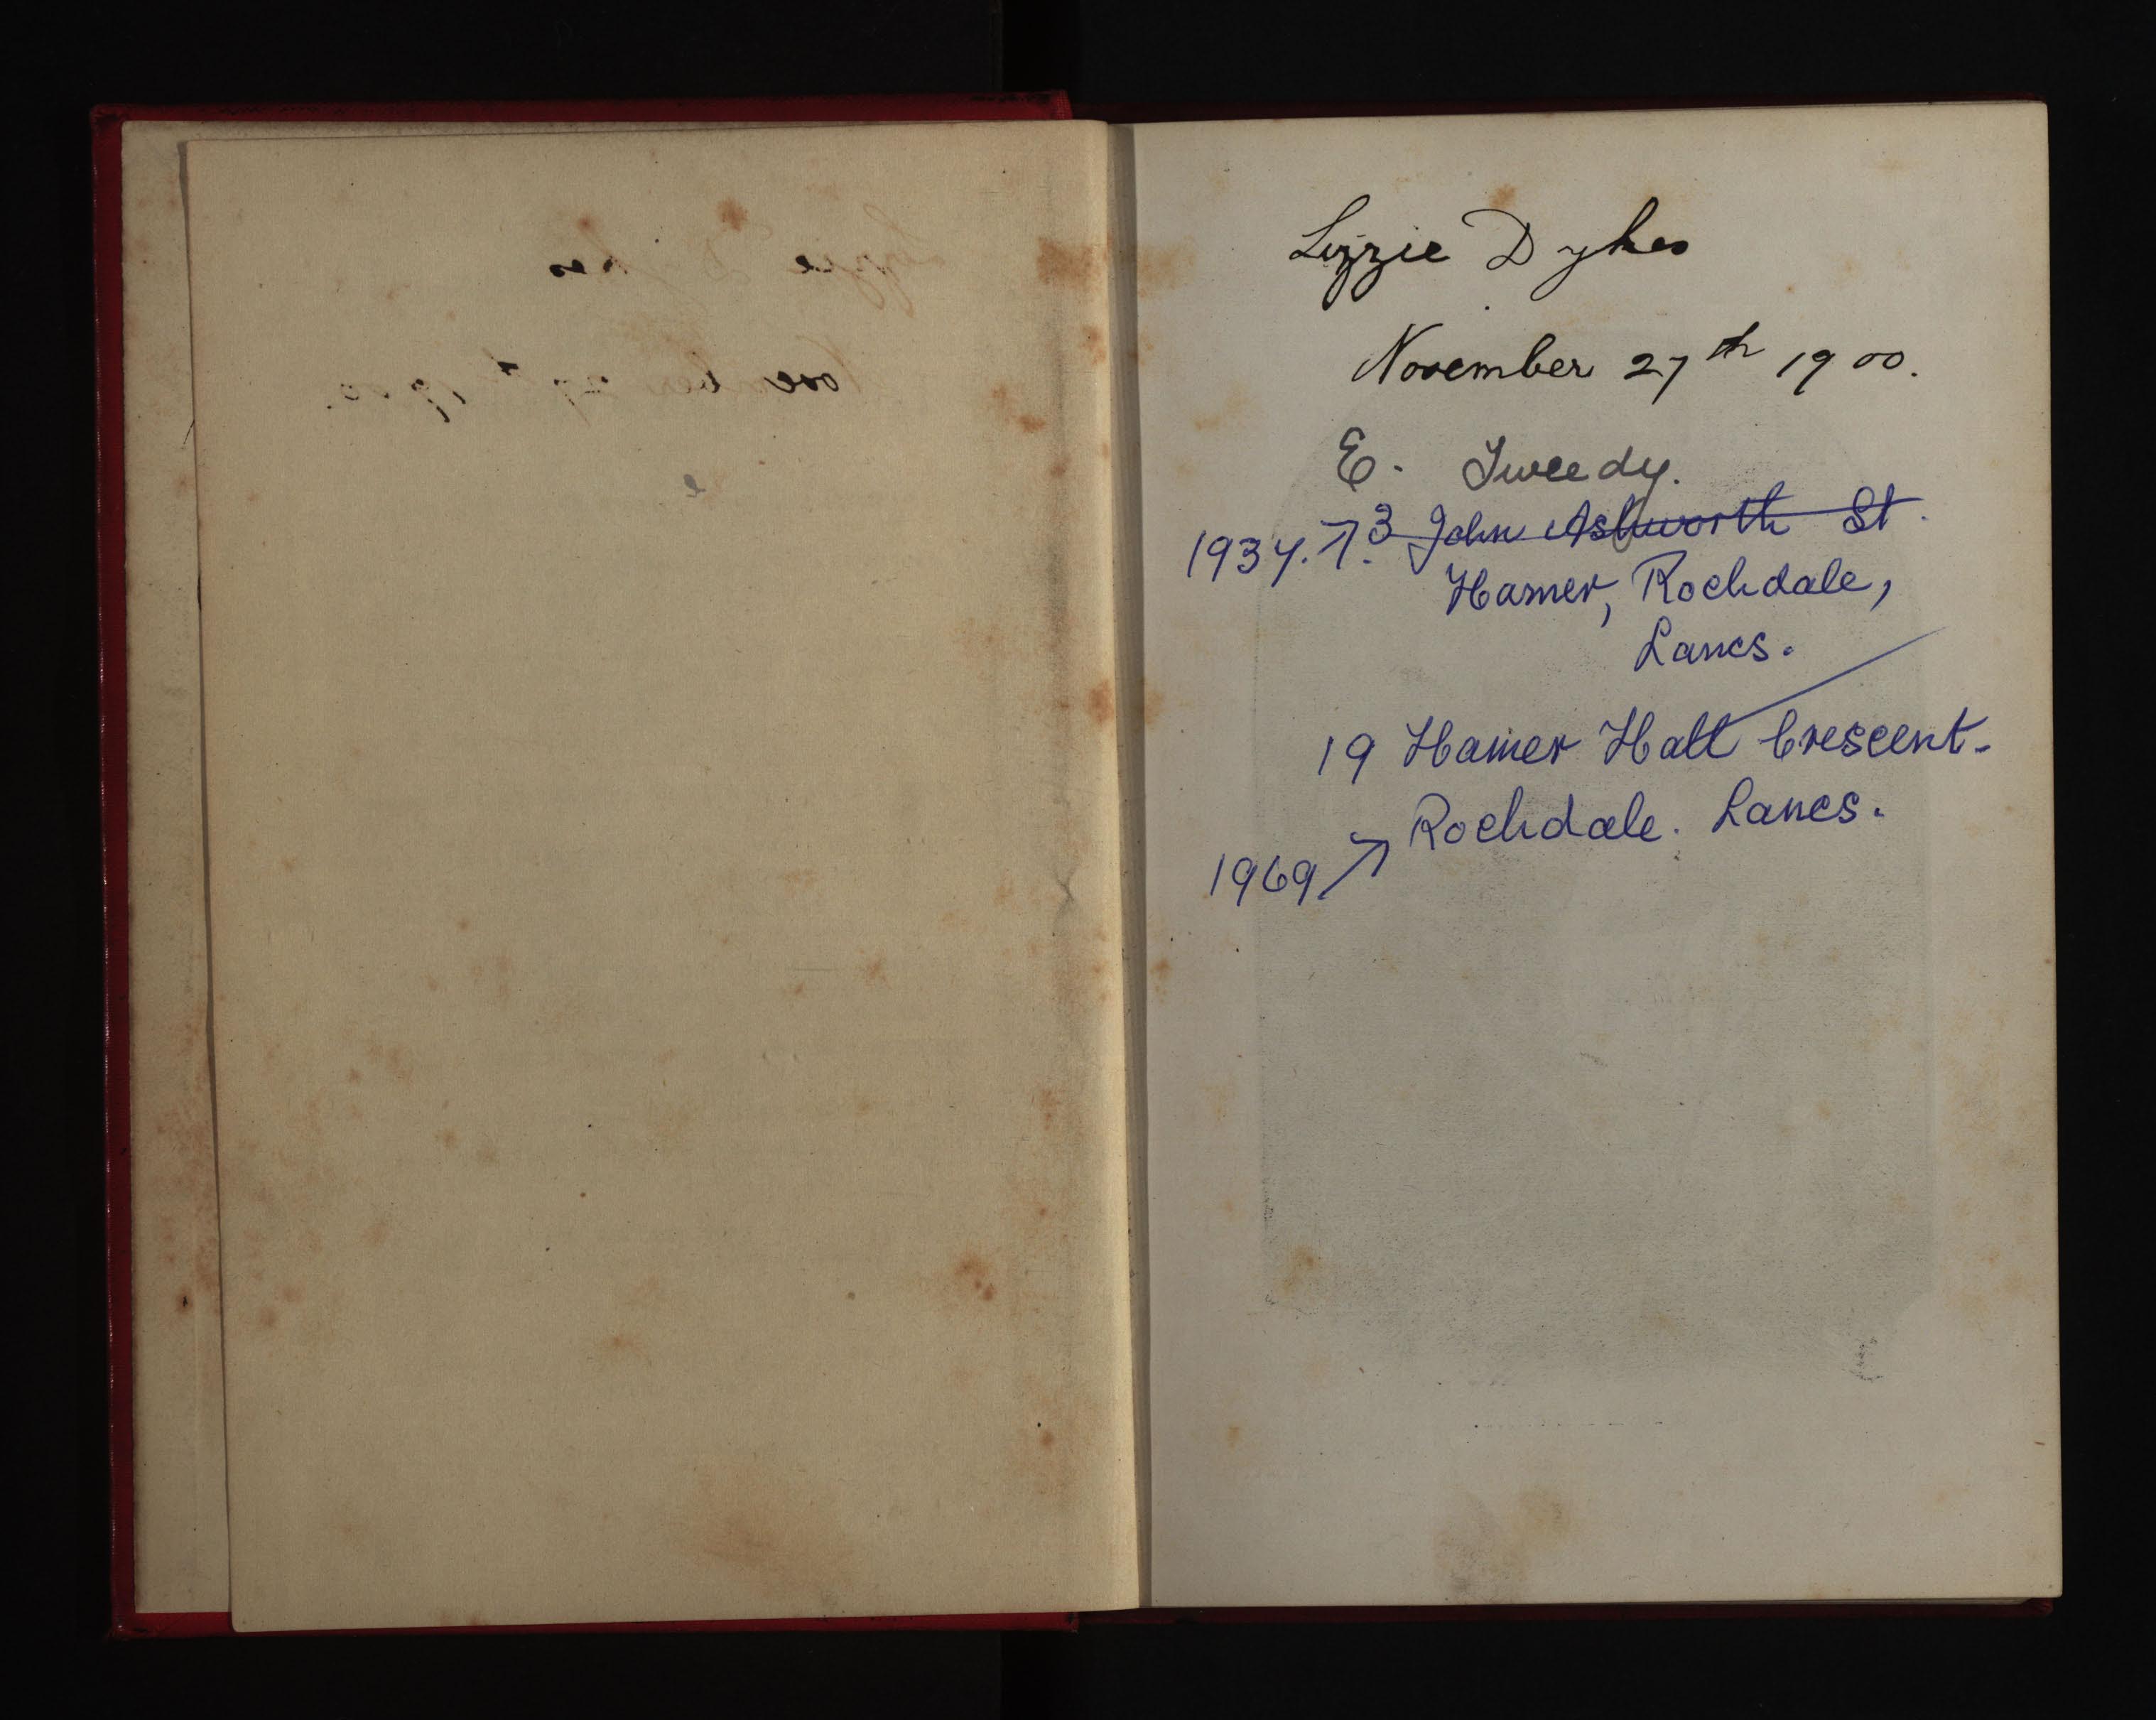 Lizzie Dykes
November 27th 1900.
E. Tweedy.
1934. ↗ 3 John Ashworth St.
Hamer, Rochdale,
Lancs.
19 Hamer Hall Crescent.
Rochdale. Lancs.
1969 ↗